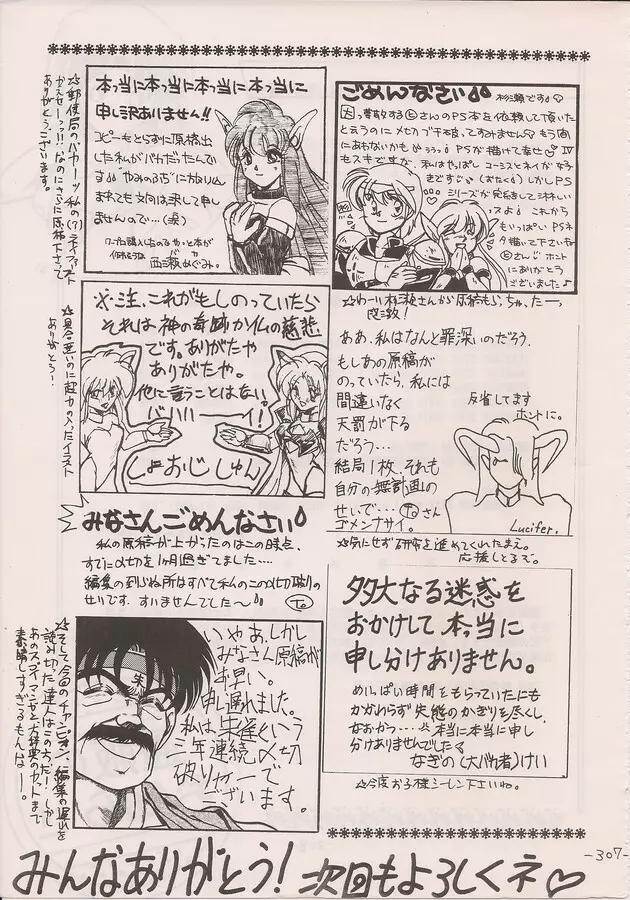 ごめんなさい
杉瀬です♡
犬っ費敬する㋪さんのPS本を依頼して頂いた
と言うのにメ切ブチ破ってすみません♡もう間
にあわないかも PSが描けて幸せ♡IV
もスキですが、私はやっぱし ルーシスとネイが好
きです (おたく)しかしPS
シリーズが完結をして淋しい
スよ♪ これから
もいっぱい PSネ
タ描いて下さいね
㋪さん♪ ホント
にありがとう
ございました♪
本っ当に本っ当に本っ当に本っ当に
申し訳ありません!!
コピーもとらずに原稿出
した私がバカだったんで
す "やみのふち"に放りこ
まれても文句は決して申し
ませんので…(涙)
西瀬めぐみ.
☆郵便局のバカーッ 私の(?)ライファースト
かえせーっ!! なのにさらに原稿下さって
ありがとうございます。
☆わーい 杉瀬さんから原稿もらっちゃったーっ
ああ、私はなんと罪深いのだろう.
もしあの原稿が
のっていたら、私には
間違いなく
天罰が下る
だろう…
結局1枚、それも
自分の無計画の
せいで… さん
ゴメンナサイ。
反省してます
ホントに。
Lucifer.
☆気にせず研究を進めてくれたまえ。
応援しとるぞ。
※注、これがもしのっていたら
それは神の奇跡か仏の慈悲
です。ありがたや
ありがたや。
他に言うことはない。
バハハーイ!
しょおじ しゅん
☆具合悪いのに超力の入ったイラスト
ありがとう!
みなさんごめんなさい
私の原稿が上がったのはこの時点、
すでに〆切を1ヶ月過ぎてました…
編集の到らぬ所はすべて私のこの〆切破りの
せいです. すいませんでした〜
多大なる迷惑を
おかけして本っ当に
申し分けありません。
めいっぱい時間をもらっていたにも
かかわらず失態のかぎりを尽くし、
なおかつ… 本当に本当に申し
分けありませんでした
なぎの(大バカ者)けい
☆今度お子様シーレン下さいね。
いやぁ、しかし
みなさん原稿が
早い。
申し遅れました。
私は朱雀という
三年連続〆切
破りヤローで
ございます。
朱
☆そして今回のチャンピオン、編集の遅れを
読み切った達人はこの方だ! しかし
あのスゴイマンガと大辞典のカットまで
素晴しすぎるもんなー。
みんなありがとう! 次回もよろしくネ♡
-307-